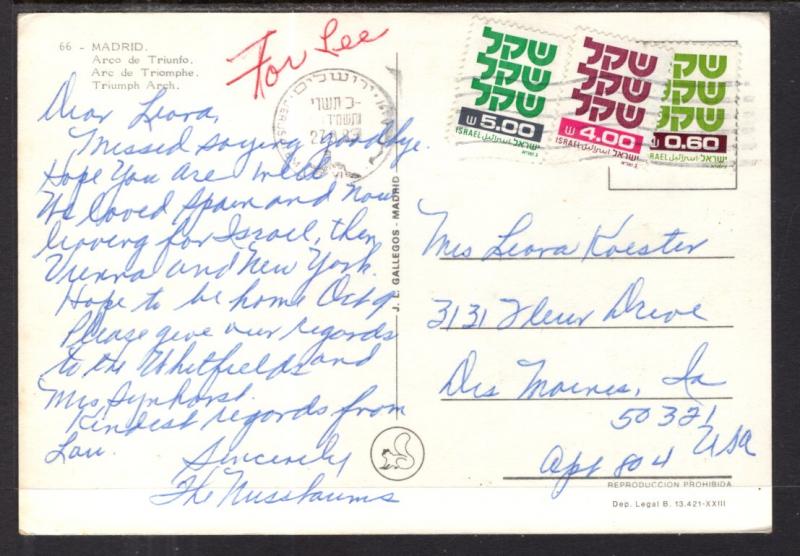 66 - MADRID.
Arco de Triunfo.
Arc de Triomphe.
Triumph Arch.
For Lee
Dear Leora,
Missed saying goodbye.
Hope You are well
We loved Spain and now
leaving for Israel, then
Vienna and New York.
Hope to be home Oct 9
Please give our regards
to the Whitfields and
Mrs Synhorst.
Kindest regards from
Lau.
Sincerely
The Nussbaums
J. L. GALLEGOS - MADRID
ירושלים
כ תשרי
שקל
שקל
שקל
5.00
ISRAEL اسرائيل ישראל
שקל
שקל
שקל
4.00
ISRAEL اسرائيل ישראל
שקל
שקל
שקל
0.60
ISRAEL اسرائيل ישראל
Mrs Leora Koester
3131 Fleur Drive
Des Moines, Ia
50321
USA
Apt 804
REPRODUCCION PROHIBIDA
Dep. Legal B. 13.421-XXIII